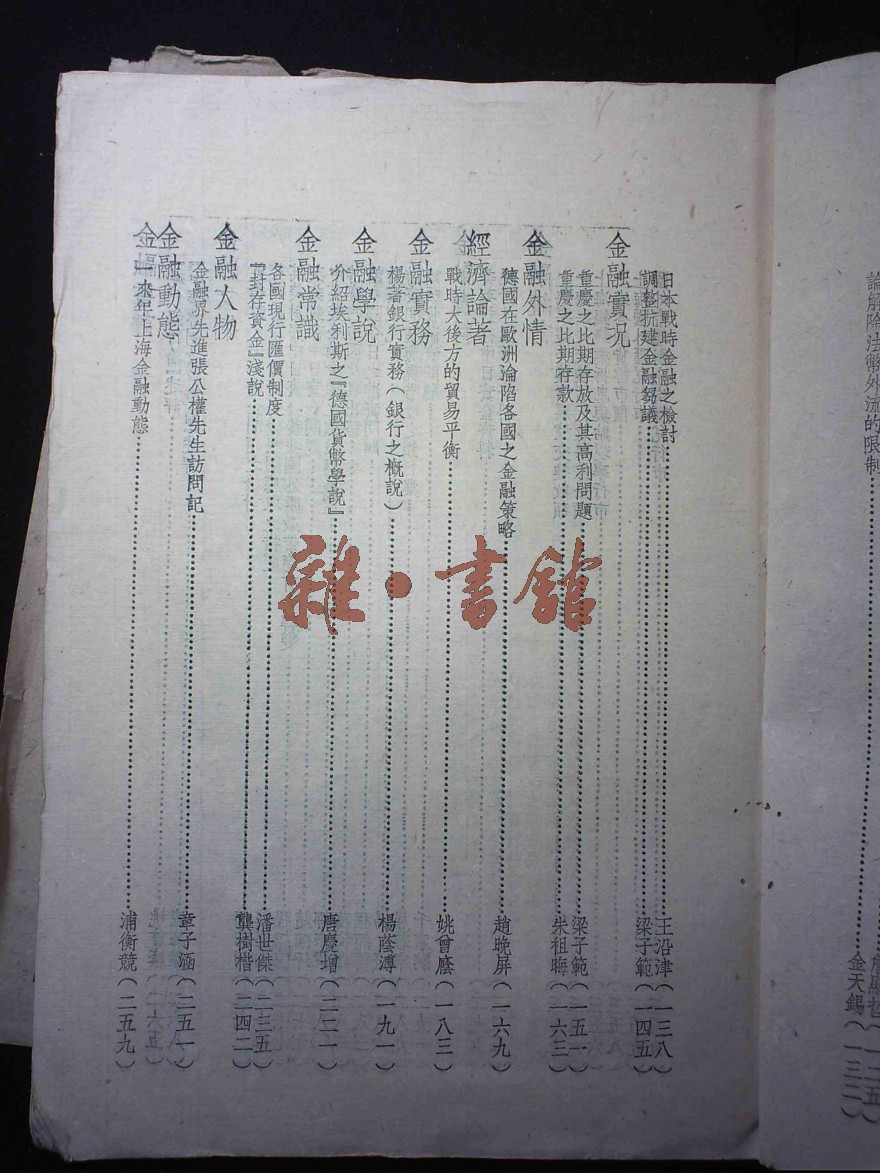 論解除法幣外流的限制
金天錫(一三二)
日本戰時金融之檢討……王沿津(一三八)
調整抗建金融芻議……梁子範(一四五)
金融實况
重慶之比期存放及其高利問題……梁子範(一五一)
重慶之比期存款……朱祖晦(一六三)
金融外情
德國在歐洲淪陷各國之金融策略……趙晚屏(一六九)
經濟論著
戰時大後方的貿易平衡……姚曾廕(一八三)
金融實務
楊著銀行實務(銀行之概說)……楊蔭溥(一九一)
金融學說
介紹埃利斯之『德國貨幣學說』……唐慶增(二二一)
金融常識
各國現行匯價制度……潘世傑(二三五)
『封存資金』淺說……龔樹楷(二四二)
金融人物
金融界先進張公權先生訪問記……章子涵(二五一)
金融動態
一年來上海金融動態……浦衡競(二五九)
雜·書館